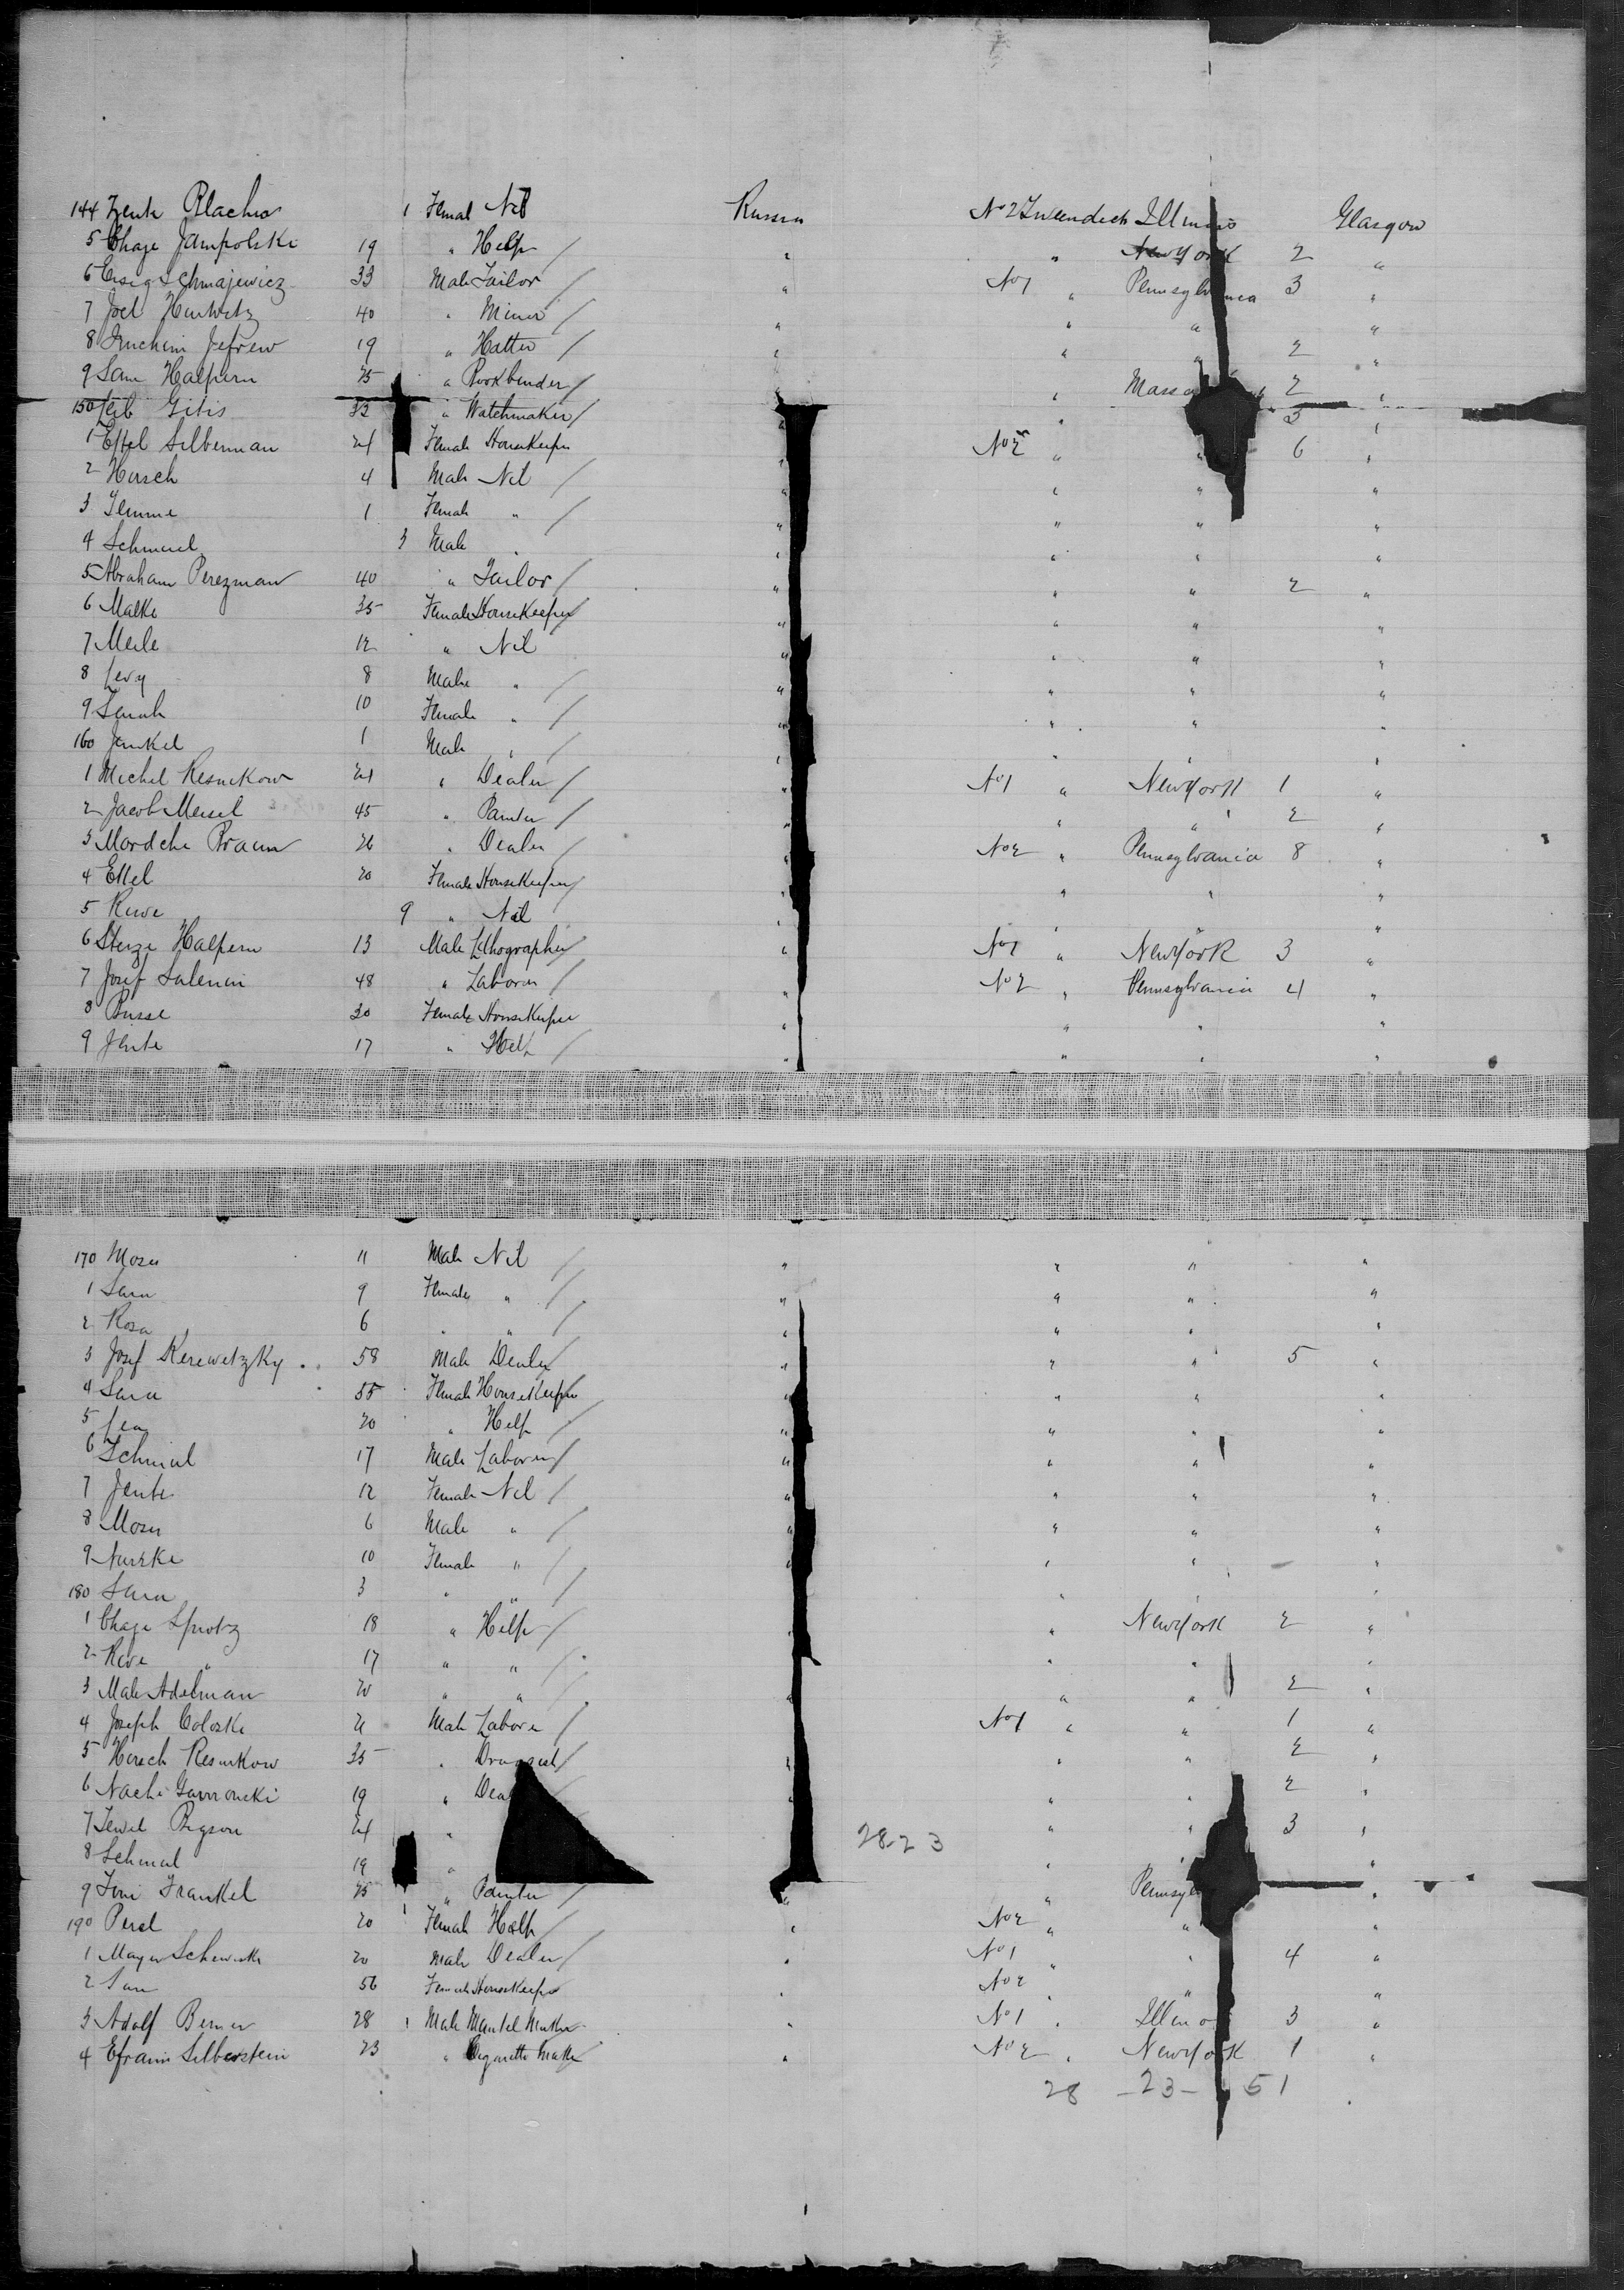 144 Zenta Blacher 1 Femal Nil Russia No 2 Tweendeck Illinois Glasgow
5 Chaje Jampolski 19 " Help / " " New York 2 "
6 Eisig Schmajewicz 33 Male Tailor / " No 1 " Pennsylvania 3 "
7 Joel Hurwitz 40 " Miner / " " " "
8 Jefrew 19 " Hatter / " " " 2 "
9 Sam Halpern 25 " Bookbinder / " " Massa 2 "
150 Leib Gitis 32 " Watchmaker / " " 3 "
1 Ettel Silberman 24 Female Housekeeper " No 2 " " 6 "
2 Hirsch 4 Male Nil / " " " "
3 1 Female " / " " " "
4 Schmuel 3 Male " " " " "
5 Abraham Perezman 40 " Tailor / " " " 2 "
6 Malke 35 Female Housekeeper / " " " "
7 Meile 12 " Nil " " " "
8 Levy 8 Male " / " " " "
9 Sarah 10 Female " / " " " "
160 Jankel 1 Male " / " " " "
1 Michel Resnikow 24 " Dealer / " No 1 " New York 1 "
2 Jacob Meisel 45 " Painter / " " " 2 "
3 Mordche Braun 26 " Dealer / " No 2 " Pennsylvania 8 "
4 Ettel 20 Female Housekeeper / " " " "
5 Riwe 9 " Nil " " " "
6 Halpern 13 Male Lithographer / " No 1 " New York 3 "
7 Josef Salenin 48 " Laborer / " No 2 " Pennsylvania 4 "
8 Busse 30 Female Housekeeper " " " "
9 Jente 17 " Help / " " " "
170 Moses 11 Male Nil / " " " "
1 Sara 9 Female " / " " " "
2 Rosa 6 " " / " " " "
3 Josef Kerewetzky 58 Male Dealer / " " " 5 "
4 Sara 55 Female Housekeeper " " " "
5 Lea 20 " Help / " " " "
6 Schmul 17 Male Laborer / " " " "
7 Jente 12 Female Nil / " " " "
8 Moses 6 Male " / " " " "
9 10 Female " / " " " "
180 Sara 3 " " / " " " "
1 Chaje Sprotz 18 " Help / " " New York 2 "
2 Riwe " 17 " " / " " " "
3 Male Adelman 20 " " / " " " 2 "
4 Joseph Coloski 21 Male Laborer / " No 1 " " 1 "
5 Hirsch Resnikow 35 " Druggist / " " " 2 "
6 19 " Deal " " " 2 "
7 24 " " " 3 "
28 23
8 Schmul 19 " " " "
9 Frankel 25 " Painter / " " Pennsyl "
190 Perel 20 Female Help / " No 2 " " "
1 20 Male Dealer / " No 1 " " 4 "
2 56 Female Housekeeper " No 2 " " "
3 Adolf Berner 28 Male Mantel Maker " No 1 " Illino 3 "
4 Efraim Silberstein 23 " Cigarette Maker " No 2 " New York 1 "
28 - 23 - 51